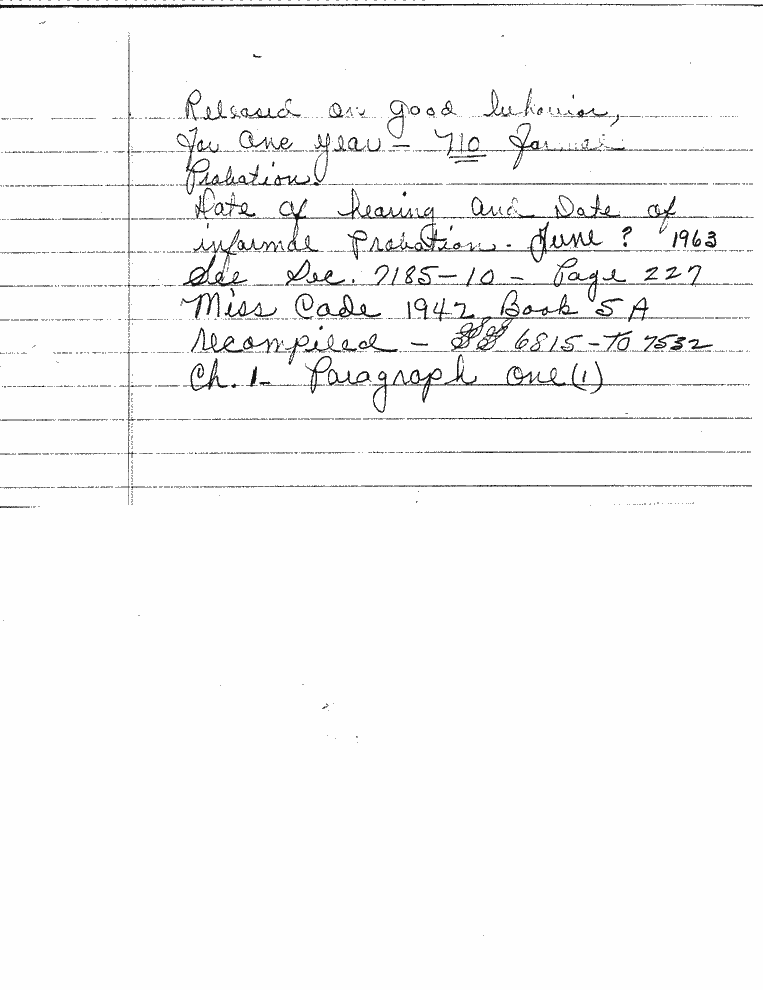 Released on good behavior,
for one year - no formal
Probation.
Date of hearing and Date of
informal Probation - June ? 1963
See Sec. 7185-10 - Page 227
Miss Code 1942 Book 5 A
recompiled - §§ 6815-To 7532
Ch. 1- Paragraph one (1)